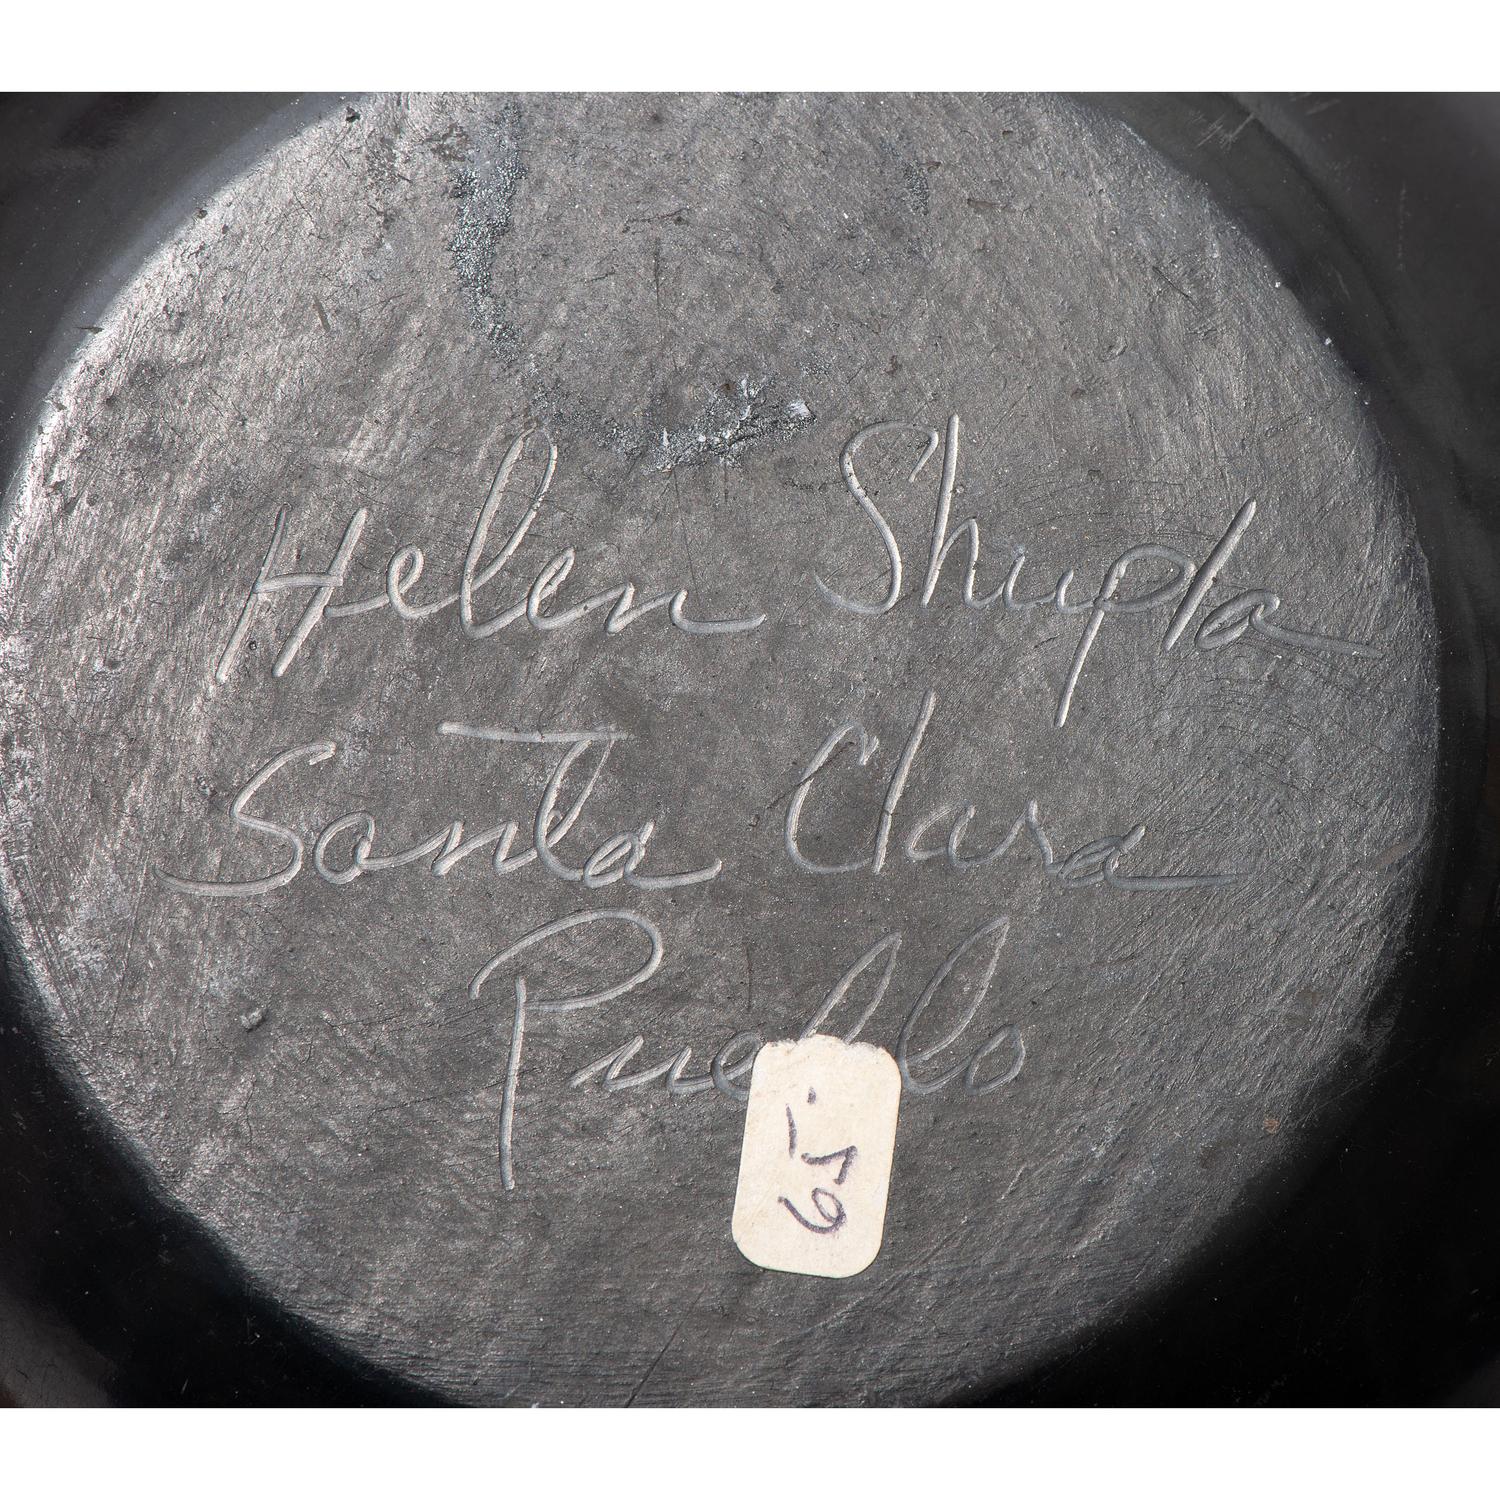 Helen Shupla
Santa Clara
Pueblo
65.-